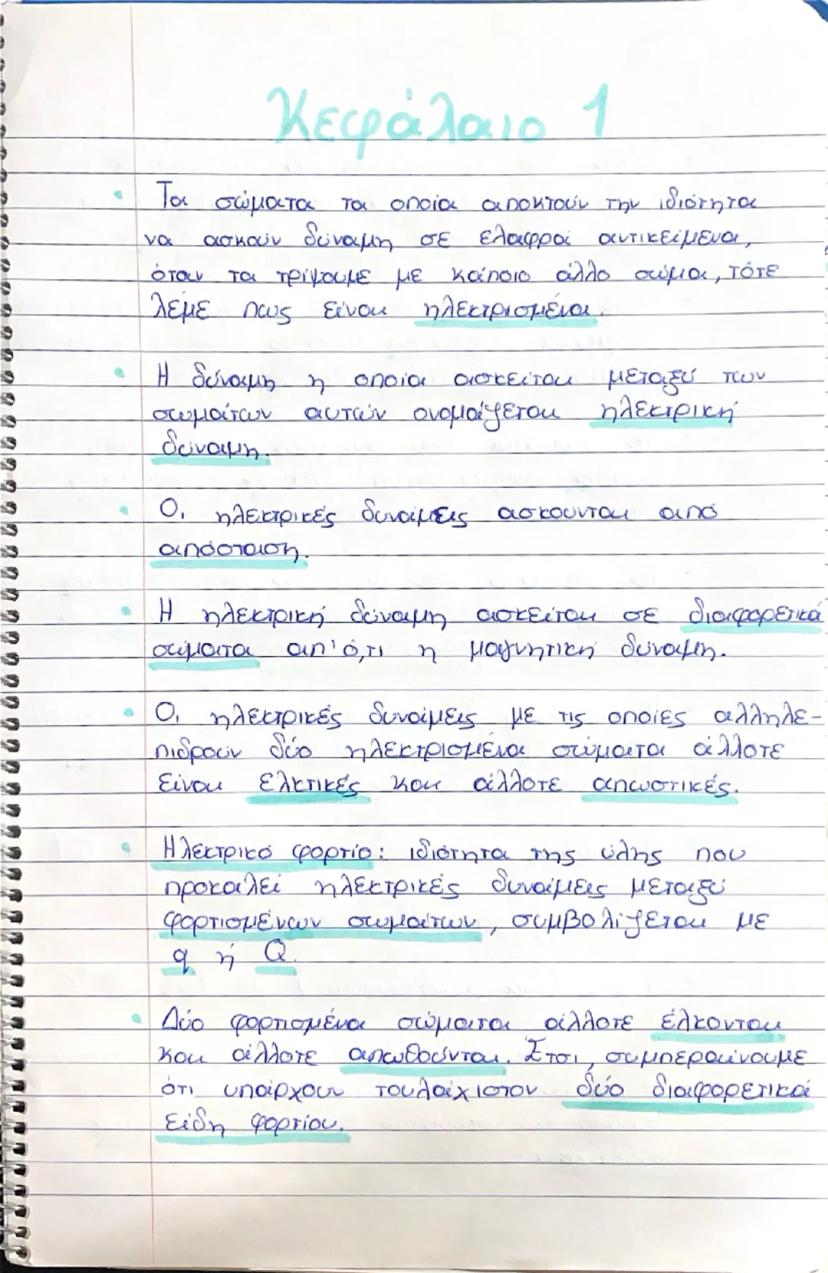 Κεφάλαιο 1
Τα σώματα τα οποία αποκτούν την ιδιότητα
να ασκούν δύναμη σε ελαφρά αντικείμενα,
όταν τα τρίψουμε με κάποιο άλλο σώμα, τότε
λέμε πως είναι ηλεκτρισμένα.
Η δύναμη η οποία ασκείται μεταξύ των
σωμάτων αυτών ονομάζεται ηλεκτρική
δύναμη.
Οι ηλεκτρικές δυνάμεις ασκουνται από
απόσταση.
Η ηλεκτρική δύναμη ασκείται σε διαφορετικά
σώματα απ' ό,τι η μαγνητική δύναμη.
Οι ηλεκτρικές δυνάμεις με τις οποίες αλληλε-
πιδρούν δύο ηλεκτρισμένα σώματα άλλοτε
είναι ελκτικές και άλλοτε απωστικές.
Ηλεκτρικό φορτίο: ιδιότητα της ύλης που
προκαλεί ηλεκτρικές δυνάμεις μεταξύ
φορτισμένων σωμάτων, συμβολίζεται με
q ή Q.
Δύο φορτισμένα σώματα άλλοτε έλκονται
και άλλοτε απωθούνται. Έτσι, συμπεραίνουμε
ότι υπάρχουν τουλάχιστον δύο διαφορετικά
είδη φορτίου.